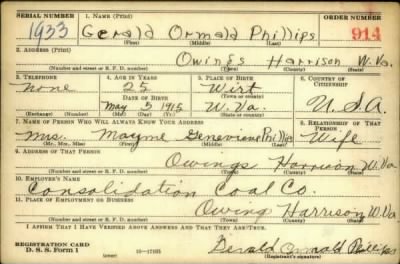 SERIAL NUMBER 1. NAME (Print) ORDER NUMBER
1933 Gerald Ormald Phillips 914
(First) (Middle) (Last)
2. ADDRESS (Print)
Owings Harrison W.Va.
(Number and street or R. F. D. number) (Town) (County) (State)
3. TELEPHONE 4. AGE IN YEARS 5. PLACE OF BIRTH 6. COUNTRY OF CITIZENSHIP
none 25 Wirt
DATE OF BIRTH (Town or county)
May 5 1915 W.Va. U.S.A.
(Exchange) (Number) (Mo.) (Day) (Yr.) (State or country)
7. NAME OF PERSON WHO WILL ALWAYS KNOW YOUR ADDRESS 8. RELATIONSHIP OF THAT PERSON
Mrs. Mayme Genevieve Phillips Wife
(Mr., Mrs., Miss) (First) (Middle) (Last)
9. ADDRESS OF THAT PERSON
Owings Harrison W.Va
(Number and street or R. F. D. number) (Town) (County) (State)
10. EMPLOYER'S NAME
Consolidation Coal Co.
11. PLACE OF EMPLOYMENT OR BUSINESS
Owing Harrison W.Va
(Number and street or R. F. D. number) (Town) (County) (State)
I AFFIRM THAT I HAVE VERIFIED ABOVE ANSWERS AND THAT THEY ARE TRUE.
REGISTRATION CARD
D. S. S. Form 1 (over) 16—17105 Gerald Ormald Phillips
(Registrant's signature)